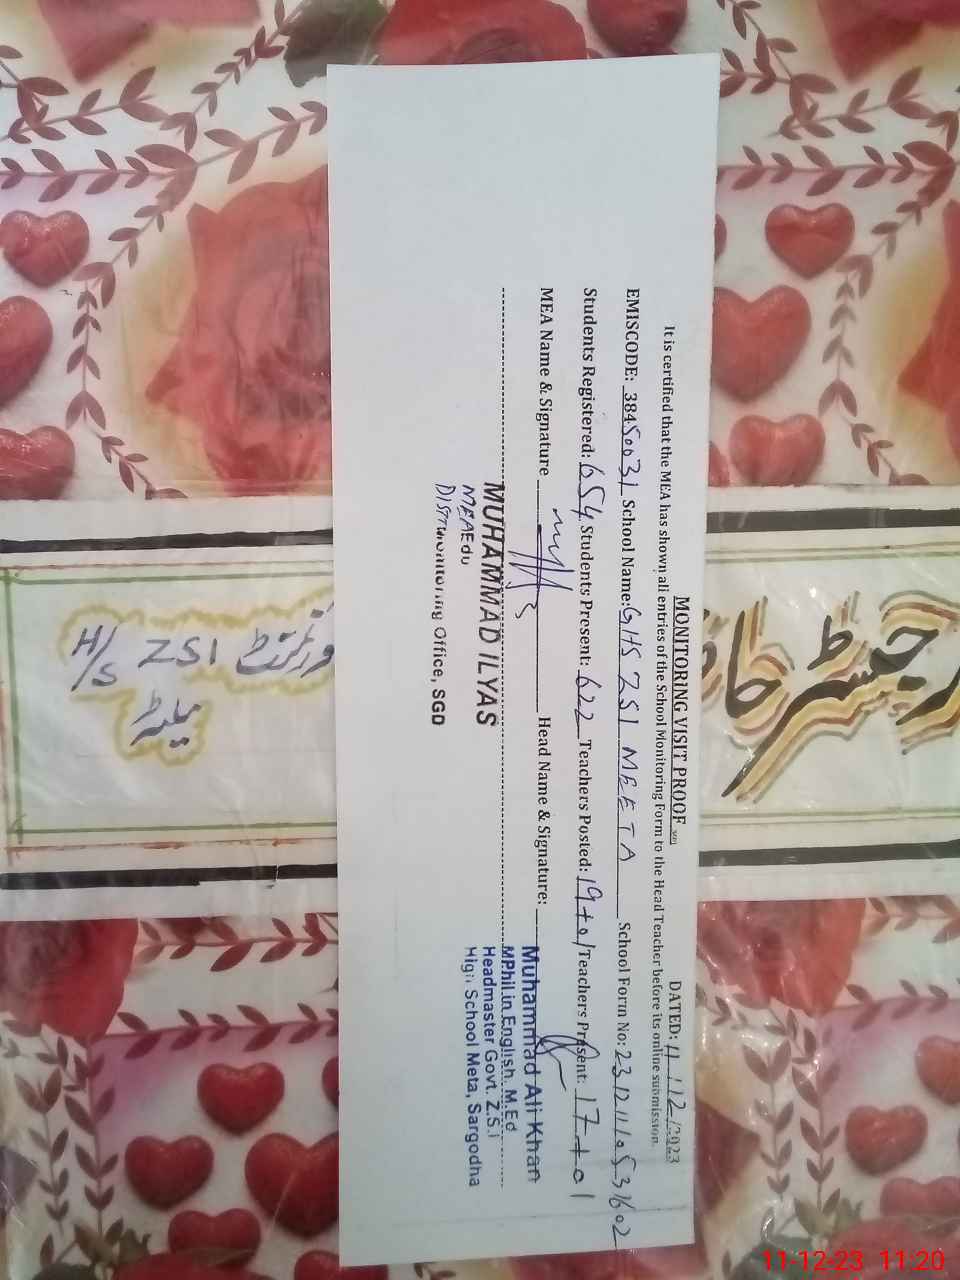 MONITORING VISIT PROOF
DATED: 11/12/2023
It is certified that the MEA has shown all entries of the School Monitoring Form to the Head Teacher before its online submission.
EMISCODE: 38450031 School Name: GHS ZSI MEETA School Form No: 23121110531602
Students Registered: 654 Students Present: 622 Teachers Posted: 19+01 Teachers Present: 17+01
MEA Name & Signature Head Name & Signature:
MUHAMMAD ILYAS
MEA Edu
Monitoring Office, SGD
Muhammad Ali Khan
MPhil.in English. M.Ed
Headmaster Govt. Z.S.I
High School Meta, Sargodha
رجسٹر
H/S ZSI گورنمنٹ
میٹہ
11-12-23 11:20